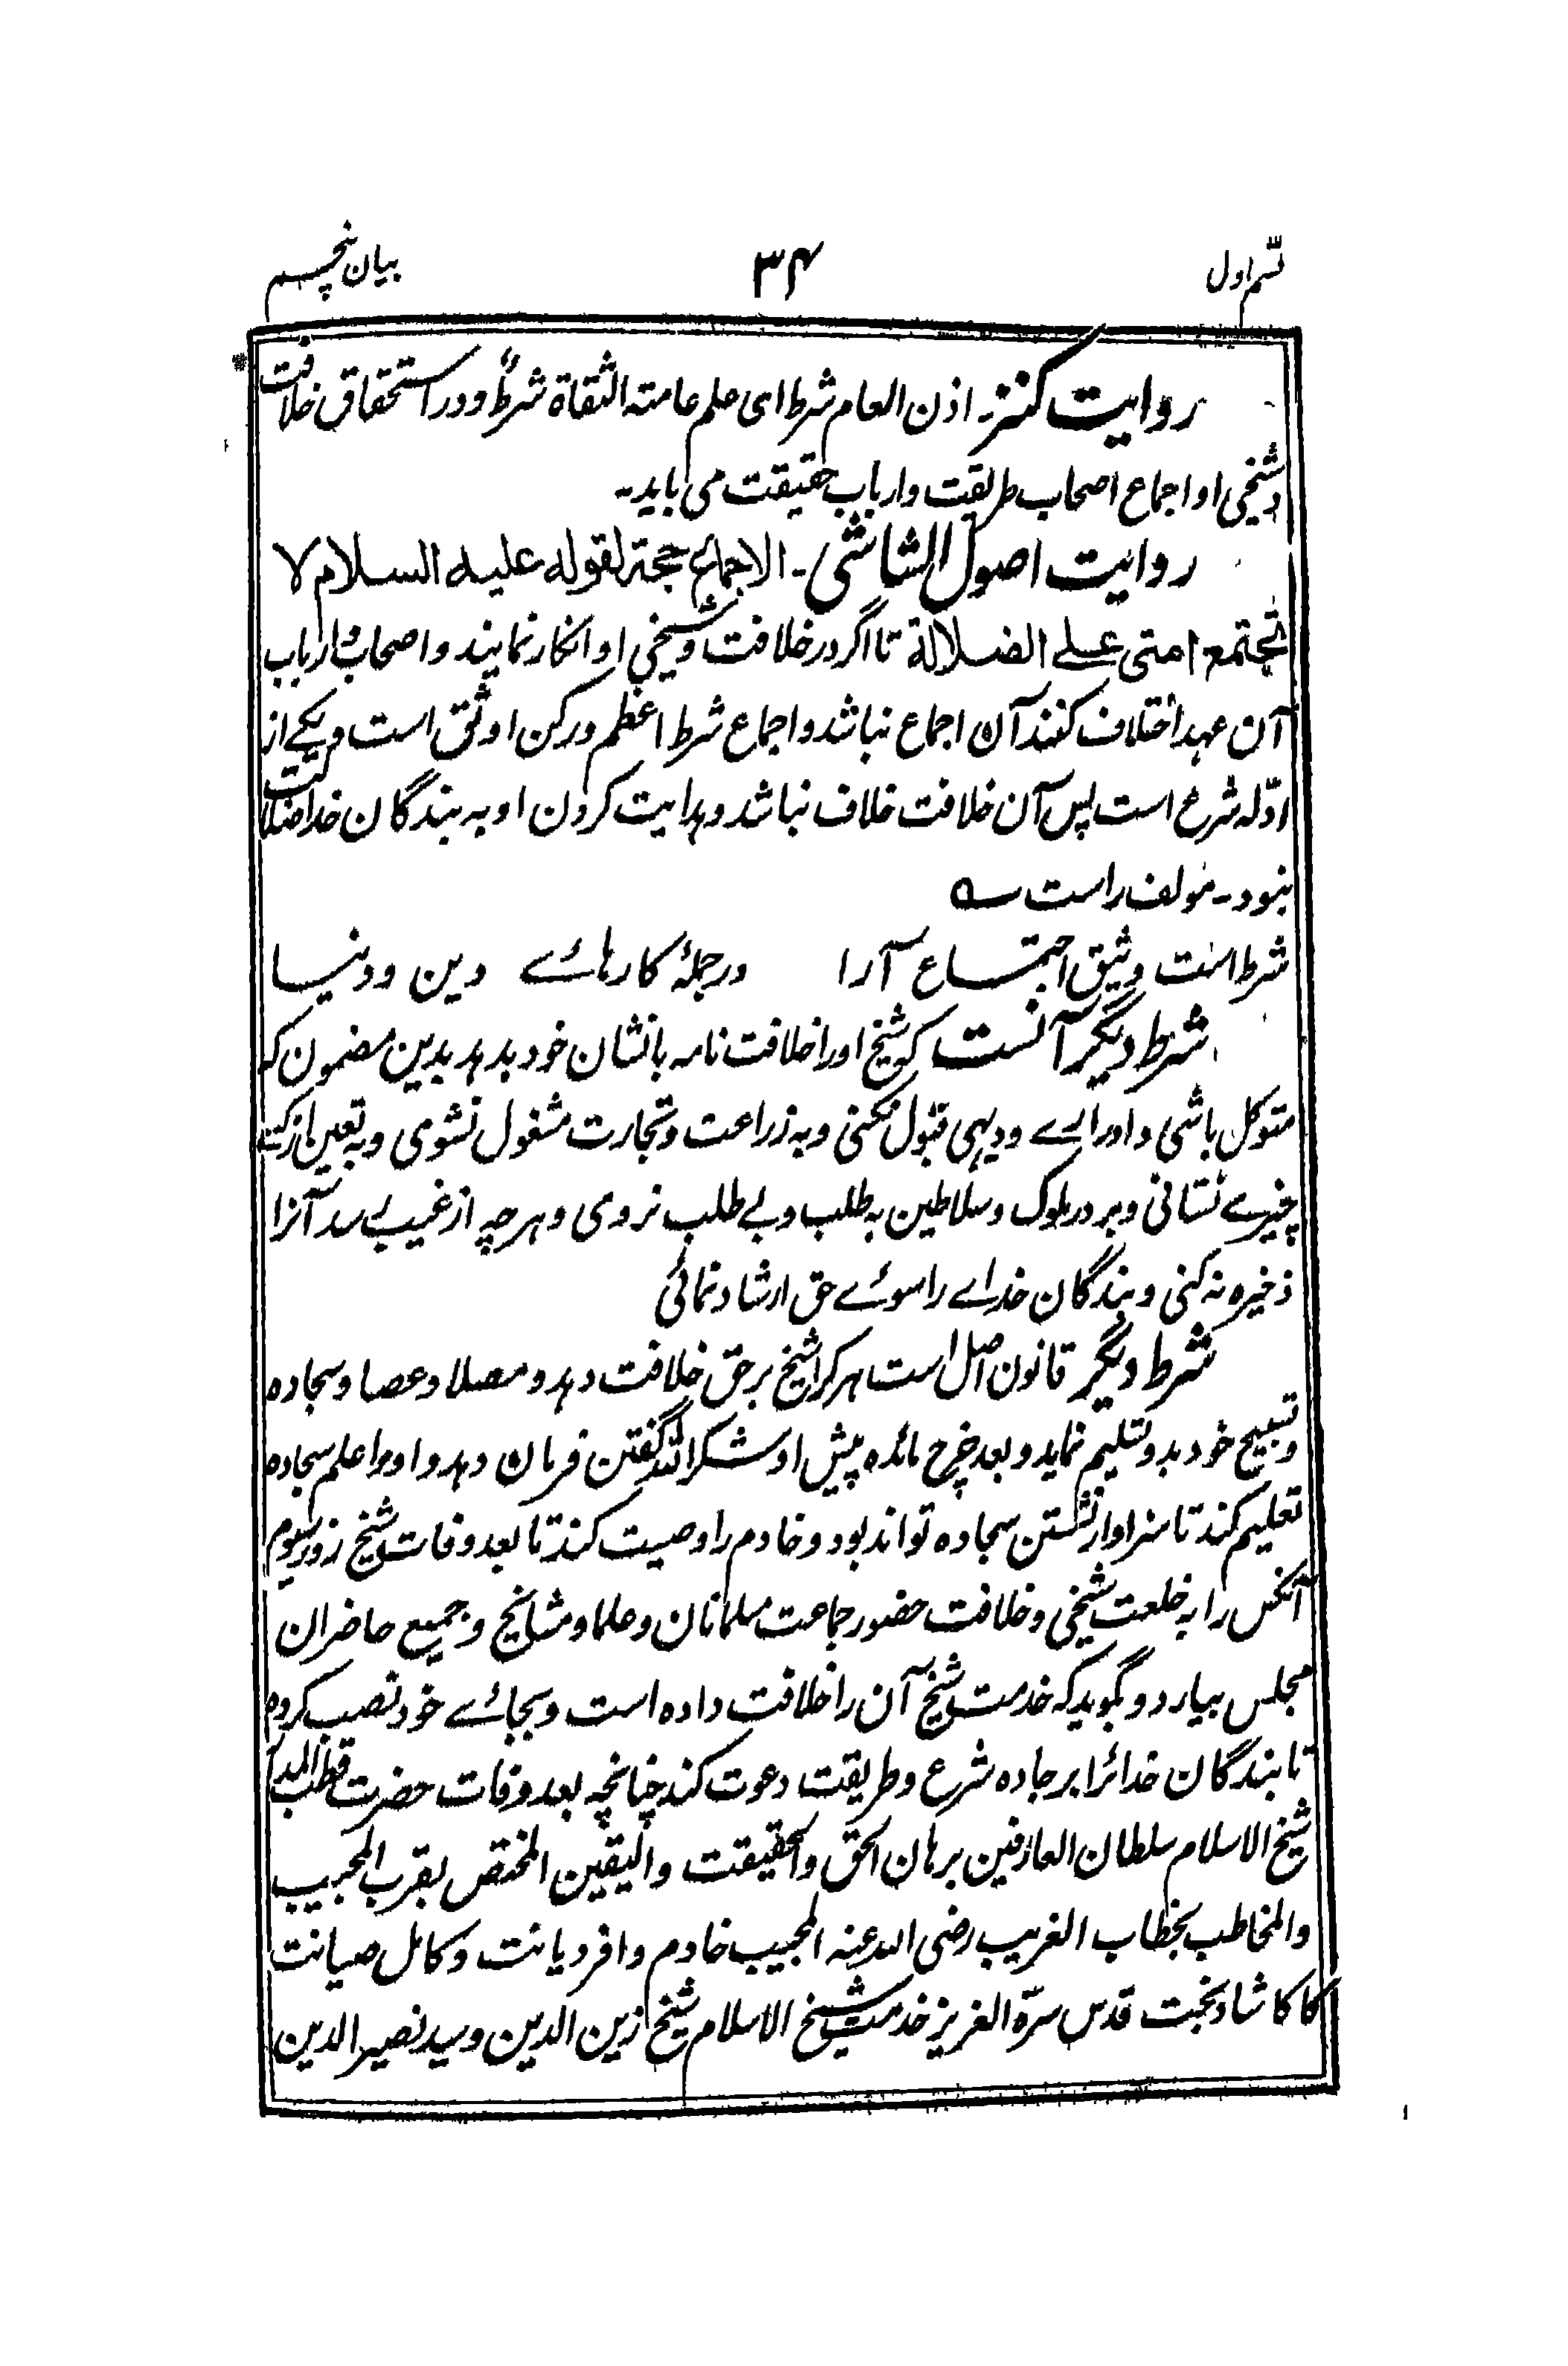 قسم اول
۳۴
بیان پنجم
روایت کنز۔ اذن العام شرط ای علم عامتہ الثقاۃ شرطٌ ودر استحقاق خلافت
وشیخی او اجماع اصحاب طریقت وارباب حقیقت می باید۔
روایت اصول الشاشی۔ الاجماع حجۃ لقولہ علیہ السلام لا
تجتمع امتی علے الضلالۃ تا اگر در خلافت وشیخی او انکار نمایند و اصحاب و ارباب
آن عہد اختلاف کنند آن اجماع نباشد و اجماع شرط اعظم و رکن اوثق است و یکے از
ادّلہ شرع است پس آن خلافت خلاف نباشد و ہدایت کردن او بہ بندگان خدا ضلالت
نبود۔ مولف راست ؎
شرط است وثیق اجتماع آرا درجملۂ کارہائے دین و دنیا
شرط دیگر آنست کہ شیخ اورا خلافت نامہ بانشان خود بدہد بدین مضمون کہ
متوکل باشی و ادرارے و دیہی قبول نکنی و بہ زراعت و تجارت مشغول نشوی و بہ تعین از کسے
چیزے نستانی و بر در ملوک و سلاطین بہ طلب و بے طلب نروی و ہرچہ از غیب برسد آنرا
ذخیرہ نہ کنی و بندگان خداے را سوئے حق ارشاد نمائی
شرط دیگر قانون اصل است ہر کرا شیخ برحق خلافت دہد و مصلا و عصا و سجادہ
و تسبیح خود بدو تسلیم نماید و بعد خرچ مائدہ پیش او شکر اللہ گفتن فرمان دہد و او را علم سجادہ
تعلیم کند تا سزاوار نشستن سجادہ تواند بود و خادم را وصیت کند تا بعد وفات شیخ روز سیوم
آنکس را بہ خلعت شیخی و خلافت حضور جماعت مسلمانان و علما و مشایخ و جمیع حاضران
مجلس بیارد و بگوید کہ خدمت شیخ آن را خلافت دادہ است و بجائے خود نصب کردہ
تا بندگان خدائرا بر جادہ شرع و طریقت دعوت کند چنانچہ بعد وفات حضرت قطب المدار
شیخ الاسلام سلطان العارفین برہان الحق والحقیقت والیقین المختص بقرب المجیب
والمخاطب بخطاب الغریب رضی اللہ عنہ المجیب خادم وافر دیانت و کامل صیانت
کاکا شاد بخت قدس سرّہ العزیز خدمت شیخ الاسلام شیخ زین الدین و سید نصیر الدین